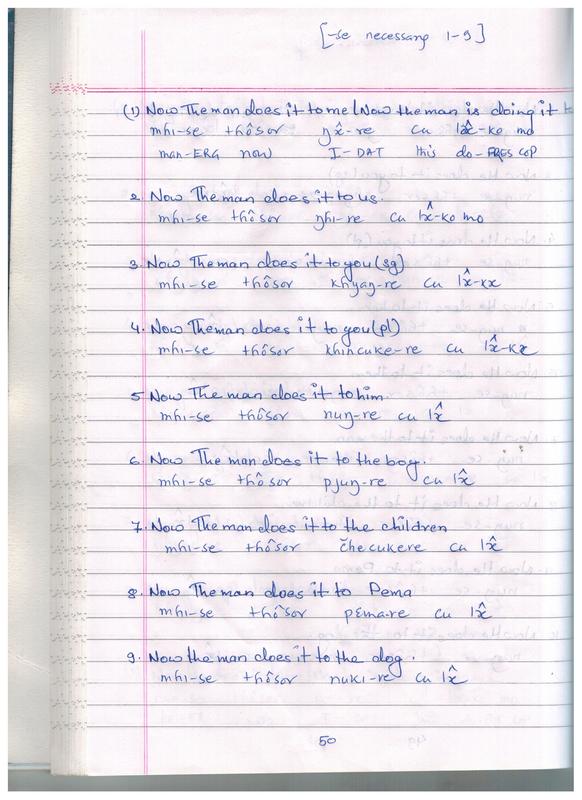 [-se necessary 1-9]
(1) Now The man does it to me / Now the man is doing it t
mhi-se thôsor ŋx̂-re cu lx̂-ko mo
man-ERG now I-DAT this do-PRES COP
2. Now The man does it to us.
mhi-se thôsor ŋhi-re cu lx̂-ko mo
3. Now The man does it to you (sg)
mhi-se thôsor khyaŋ-re cu lx̂-kx
4. Now The man does it to you (pl)
mhi-se thôsor khincuke-re cu lx̂-kx
5 Now The man does it to him.
mhi-se thôsor nuŋ-re cu lx̂
6. Now The man does it to the boy.
mhi-se thôsor pjuŋ-re cu lx̂
7. Now The man does it to the children
mhi-se thôsor čhecukere cu lx̂
8. Now The man does it to Pema
mhi-se thôsor pɛma-re cu lx̂
9. Now the man does it to the dog.
mhi-se thôsor nukı-re cu lx̂
50